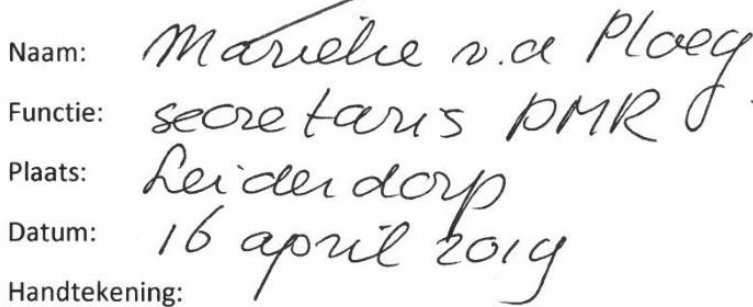 Naam: Marieke v.d Ploeg
Functie: secretaris PMR
Plaats: Leiderdorp
Datum: 16 april 2019
Handtekening: